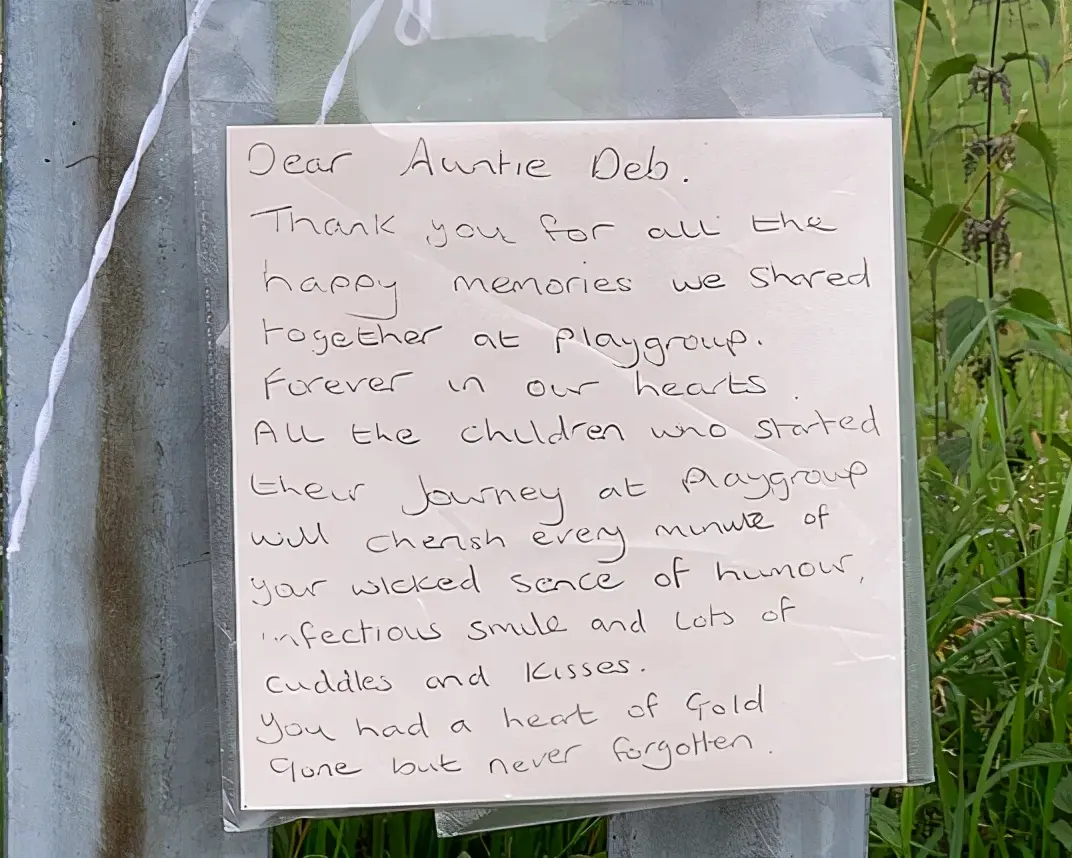 Dear Auntie Deb.
Thank you for all the
happy memories we shared
together at Playgroup.
Forever in our hearts.
All the children who started
their Journey at Playgroup
will cherish every minute of
your wicked sence of humour,
infectious smile and Lots of
cuddles and kisses.
You had a heart of Gold
Gone but never forgotten.